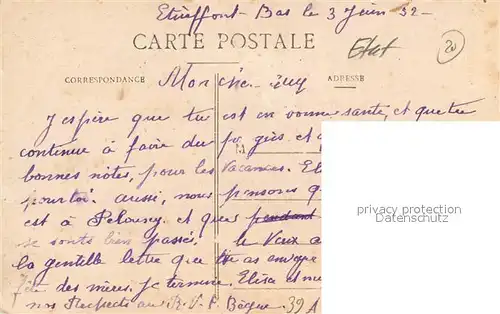 Etueffont-Bas le 3 Juin 32-
CARTE POSTALE
Etat
20
CORRESPONDANCE
ADRESSE
Mon cher
J'espère que tu est en bonne santé, et que tu
continue à faire du progrès et
bonnes notes, pour les Vacances.
pour toi. aussi, nous pensons q
est à et que pendant
se sont bien passés. le Vieux a
la gentille lettre que tu as envoyé
fêt des mères. je termine. Elisa et
nos Respects au R.P. Bègue.
39 A
privacy protection
www.oldthing.com